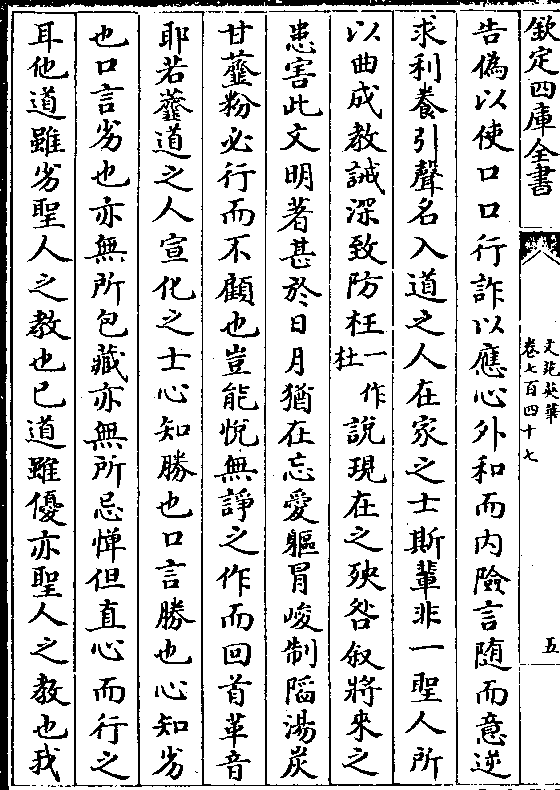 欽定四庫全書
文苑英華
卷七百四十七
五
告偽以使口口行詐以應心外和而內險言随而意逆
求利養引聲名入道之人在家之士斯輩非一聖人所
以曲成教誡深致防枉一作杜說現在之殃咎叙將來之
患害此文明著甚於日月猶在忘愛軀冒峻制陷湯炭
甘虀粉必行而不顧也豈能悅無諍之作而回首革音
耶若虀道之人宣化之士心知勝也口言勝也心知劣
也口言劣也亦無所包藏亦無所忌憚但直心而行之
耳他道雖劣聖人之教也已道雖優亦聖人之教也我